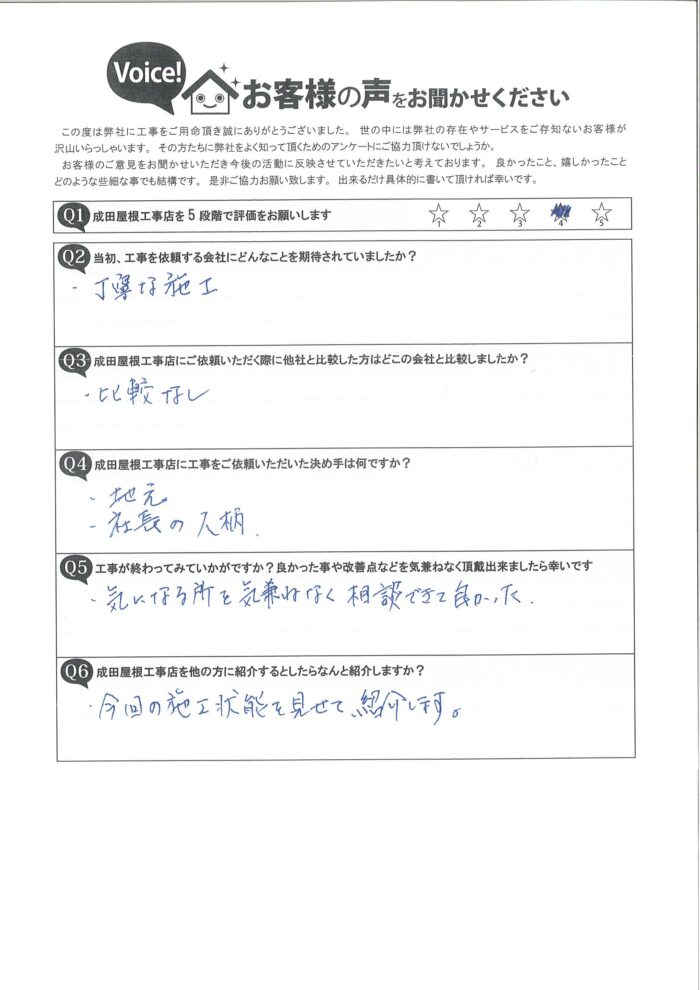 Voice!
お客様の声をお聞かせください
この度は弊社に工事をご用命頂き誠にありがとうございました。 世の中には弊社の存在やサービスをご存知ないお客様が
沢山いらっしゃいます。 その方たちに弊社をよく知って頂くためのアンケートにご協力頂けないでしょうか。
お客様のご意見をお聞かせいただき今後の活動に反映させていただきたいと考えております。 良かったこと、嬉しかったこと
どのような些細な事でも結構です。 是非ご協力お願い致します。 出来るだけ具体的に書いて頂ければ幸いです。
Q1 成田屋根工事店を5段階で評価をお願いします
1 2 3 4 5
Q2 当初、工事を依頼する会社にどんなことを期待されていましたか？
・丁寧な施工
Q3 成田屋根工事店にご依頼いただく際に他社と比較した方はどこの会社と比較しましたか？
・比較なし
Q4 成田屋根工事店に工事をご依頼いただいた決め手は何ですか？
・地元
・社長の人柄.
Q5 工事が終わってみていかがですか？良かった事や改善点などを気兼ねなく頂戴出来ましたら幸いです
・気になる所を気兼ねなく相談できて良かった.
Q6 成田屋根工事店を他の方に紹介するとしたらなんと紹介しますか？
・今回の施工状態を見せて、紹介します。